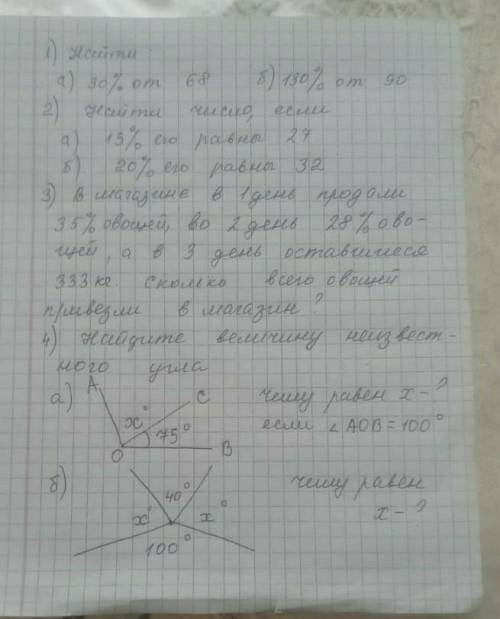 1) Найти:
а) 30% от 68 б) 130% от 90
2) Найти число, если
а) 15% его равны 27
б) 20% его равны 32
3) В магазине в 1 день продали
35% овощей, во 2 день 28% ово-
щей, а в 3 день оставшиеся
333 кг Сколько всего овощей
привезли в магазин?
4) Найдите величину неизвест-
ного угла
а) A x° C 75° O B чему равен x - ?
если ∠AOB = 100°
б) 40° x° x° 100° чему равен
x - ?